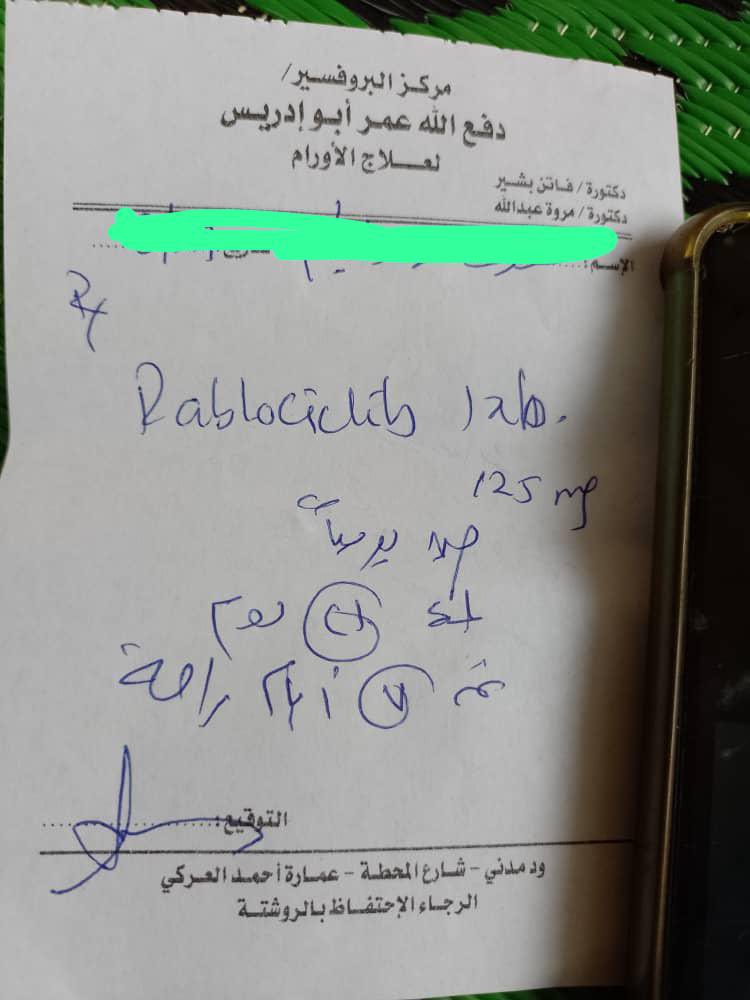 مركز البروفسير/
دفع الله عمر أبو إدريس
لعلاج الأورام
دكتورة / فاتن بشير
دكتورة / مروة عبدالله
الإسم:
Rx
Pablociclib tab.
125 mg
حبة يومياً
لمدة ٢١ يوم
ثم ٧ أيام راحة
التوقيع:
ود مدني - شارع المحطة - عمارة أحمد العركي
الرجاء الإحتفاظ بالروشتة